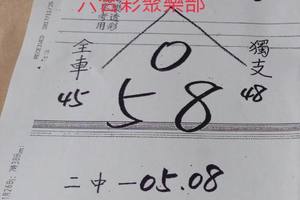 六合彩聚樂部
全車
獨支
0
45 58 48
二中一05.08